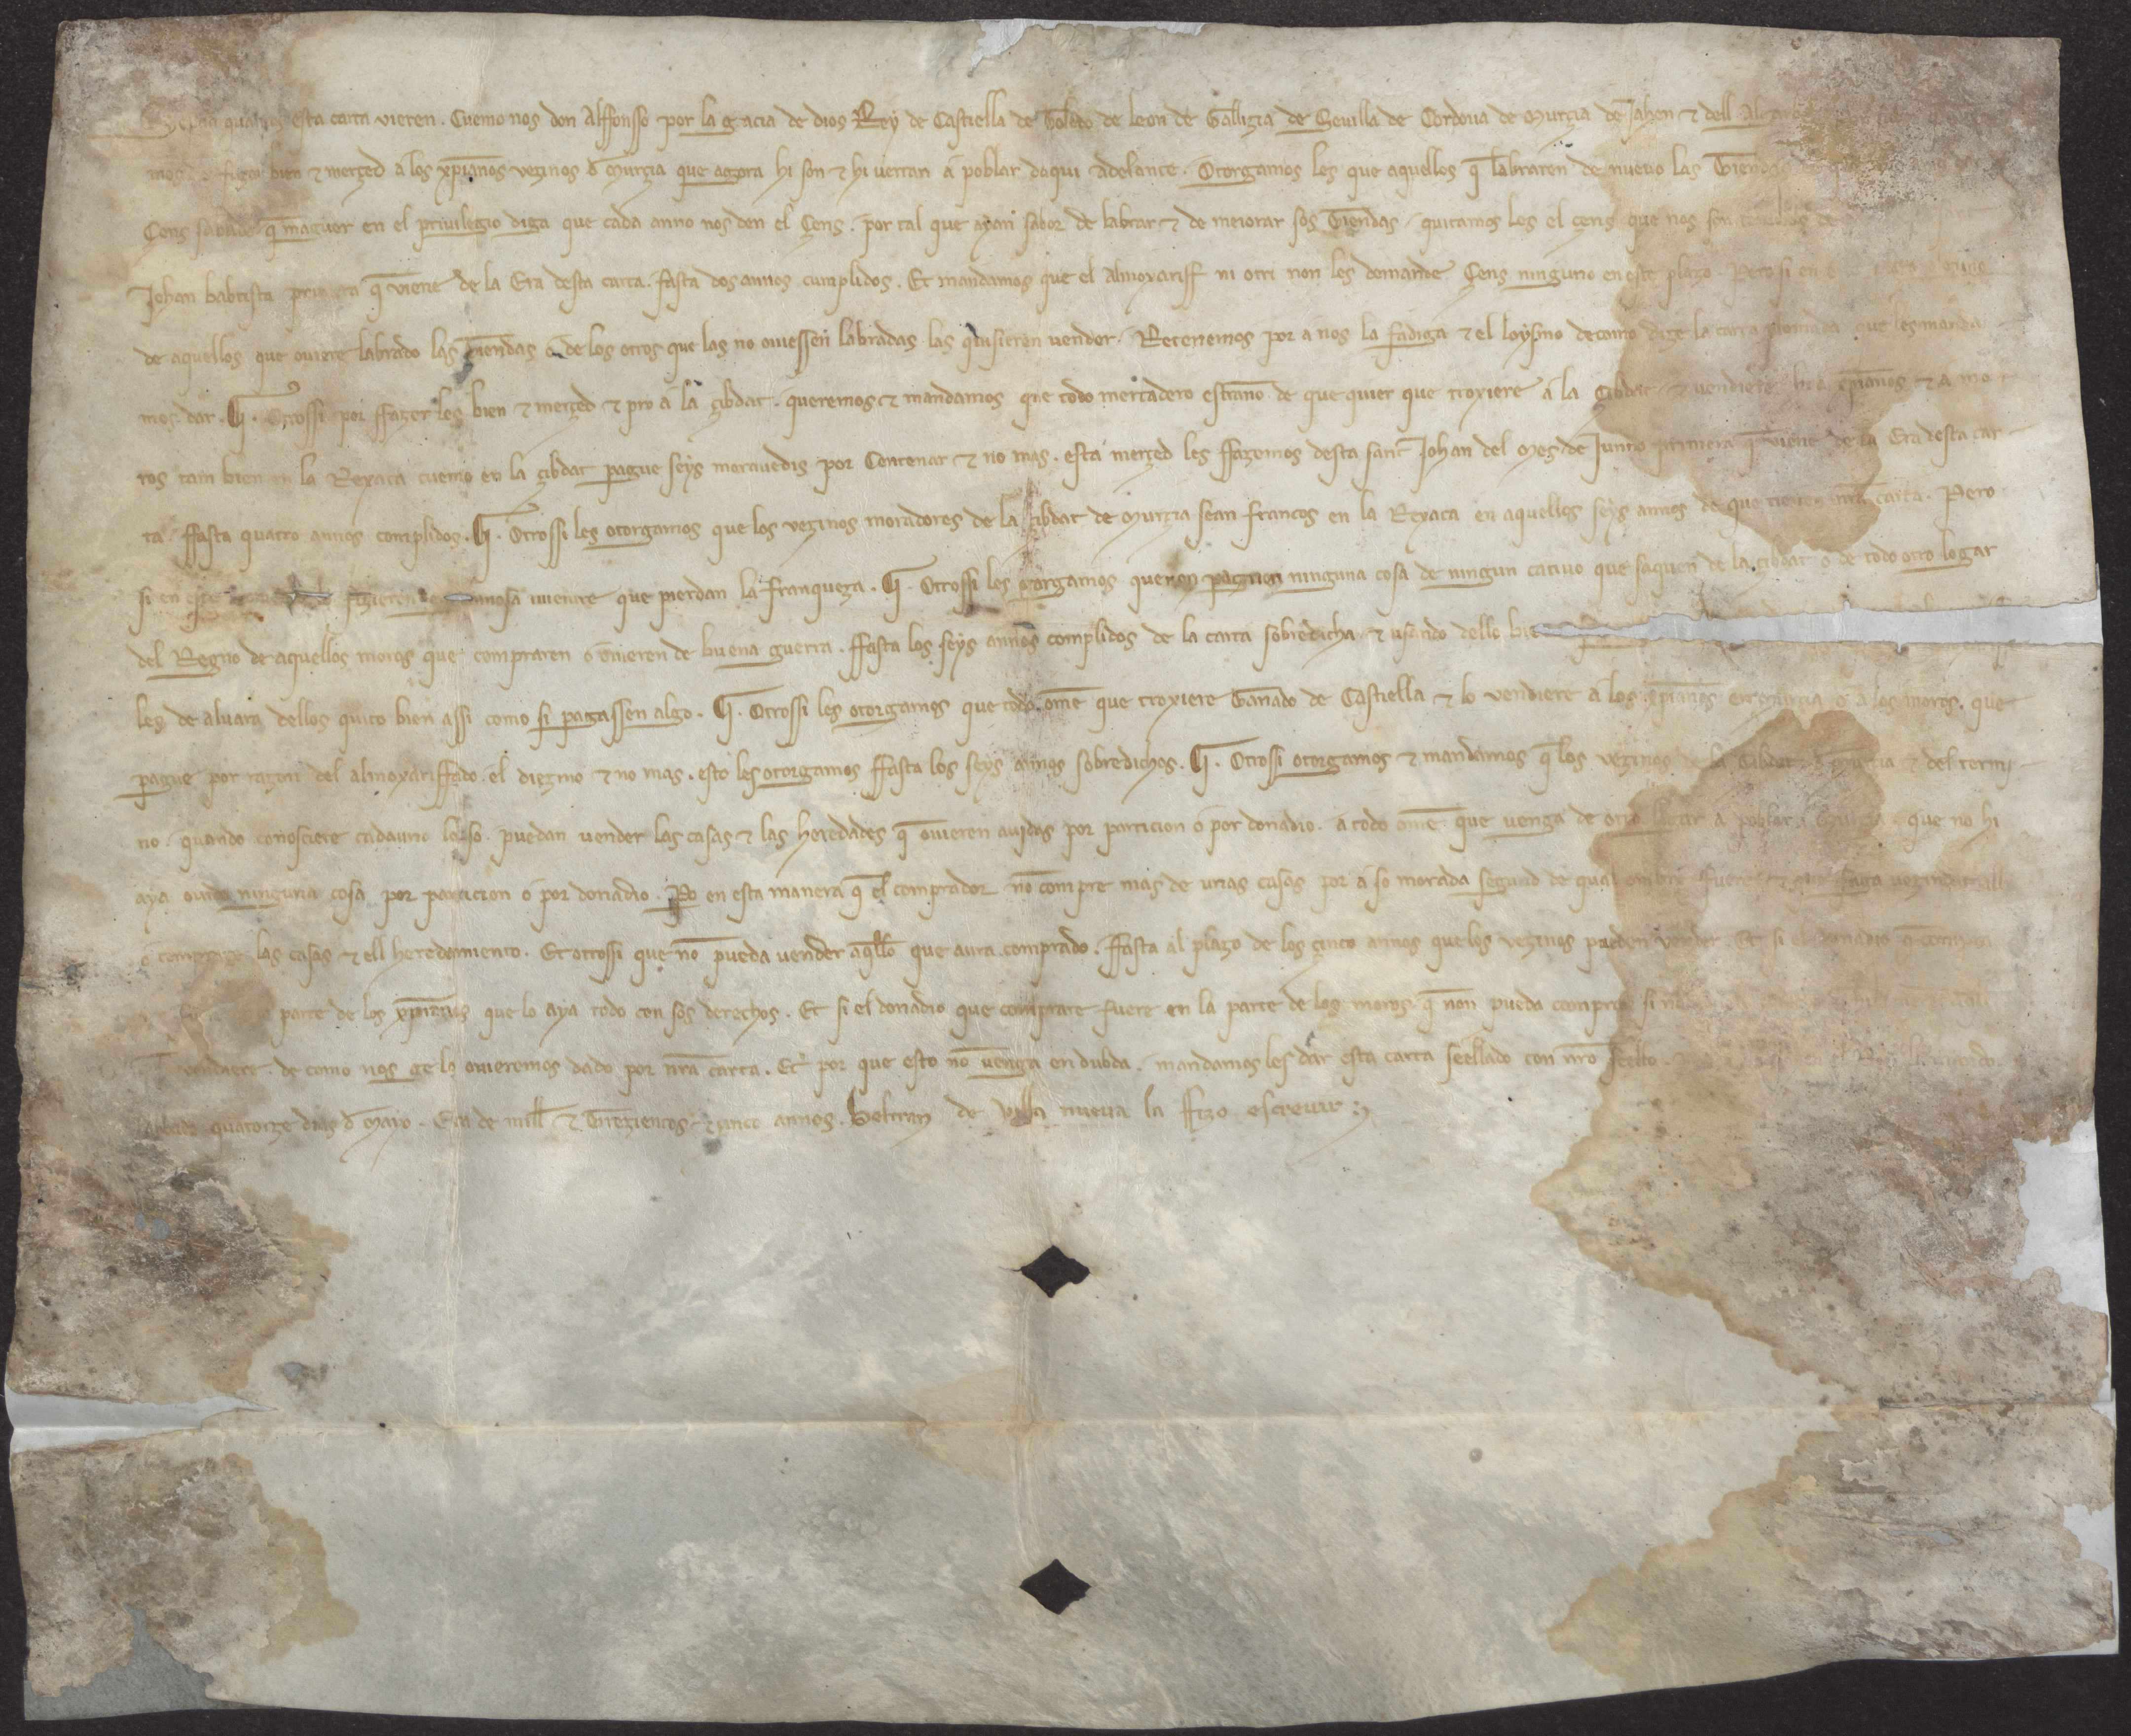 Sepan quantos esta carta vieren. Cuemo nos don Alffonsso por la gracia de dios Rey de Castiella de Toledo de Leon de Gallizia de Sevilla de Cordova de Murçia de Jahen & dell Algarbe
bien & merçed a los xpianos vezinos d Murçia que agora hi son & hi verran a poblar daqui adelante. Otorgamos les que aquellos q labraren de nuevo las Tiendas
Çens q maguer en el privilegio diga que cada anno nos den el Çens. por tal que ayan sabor de labrar & de meiorar sos Tiendas. quitamos les el çens que nos son
Johan babtista primera q viene de la Era desta carta. fasta dos annos cumplidos. Et mandamos que el Almoxariff ni otri non les demande Çens ninguno en este plazo. Pero si en
de aquellos que oviere labrado las Tiendas o de los otros que las no oviessen labradas las quisieren vender. Retenemos por a nos la fadiga & el loysmo de como dize la carta plomada que les manda
mos dar. Otrossi por ffazer les bien & merçed & pro a la çibdat. queremos & mandamos que todo mercadero estrano de que quier que troxiere a la Çibdat & vendiere a xpianos & a mo
ros tam bien en la Rexaca cuemo en la çibdat pague seys moravedis por Centenar & no mas. esta merçed les ffazemos desta sant Johan del mes de Junio primera q viene de la Era desta car
ta. ffasta quatro annos complidos. Otrossi les otorgamos que los vezinos moradores de la çibdat de Murçia sean francos en la Rexaca en aquellos seys annos de que tienen nra carta. Pero
si en este fizieren miente que pierdan la franqueza. Otrossi les otorgamos que non paguen ninguna cosa de ningun cativo que saquen de la çibdat o de todo otro logar
del Regno de aquellos moros que compraren o ovieren de buena guerra. ffasta los seys annos complidos de la carta sobredicha & usando dello
les de alvara dellos quito bien assi como si pagassen algo. Otrossi les otorgamos que todo ome que troxiere Ganado de Castiella & lo vendiere a los xpianos en Murçia o a los moros. que
pague por razon del almoxariffado el diezmo & no mas. esto les otorgamos ffasta los seys annos sobredichos. Otrossi otorgamos & mandamos q los vezinos de la Çibdat d Murçia & del termi
no. quando conosciere cadauno lo so. puedan vender las casas & las heredades q ovieren avidas por particion o por donadio. a todo ome que venga de otro logar a poblar a Murçia que no hi
aya ninguna cosa por particion o por donadio. Po en esta manera q el comprador no compre mas de unas casas por a so morada segund de qual ombre fuere & que faga vezindat
o comprare las casas & ell heredamiento. Et otrossi que no pueda vender aqllo que aura comprado. ffasta al plazo de los çinco annos que los vezinos pueden vender. Et si el donadio q
parte de los xpianos que lo aya todo con sos derechos. Et si el donadio que comprare fuere en la parte de los moros q non pueda comprar si no
vendiere. de como nos ge lo ovieremos dado por nra carta. Et por que esto no venga en dubda. mandamos les dar esta carta seellado con nro seello.
quatorze dias d Mayo. Era de mill & Trezientos & çinco annos. Beltran de Villa nueva la ffizo escrevir